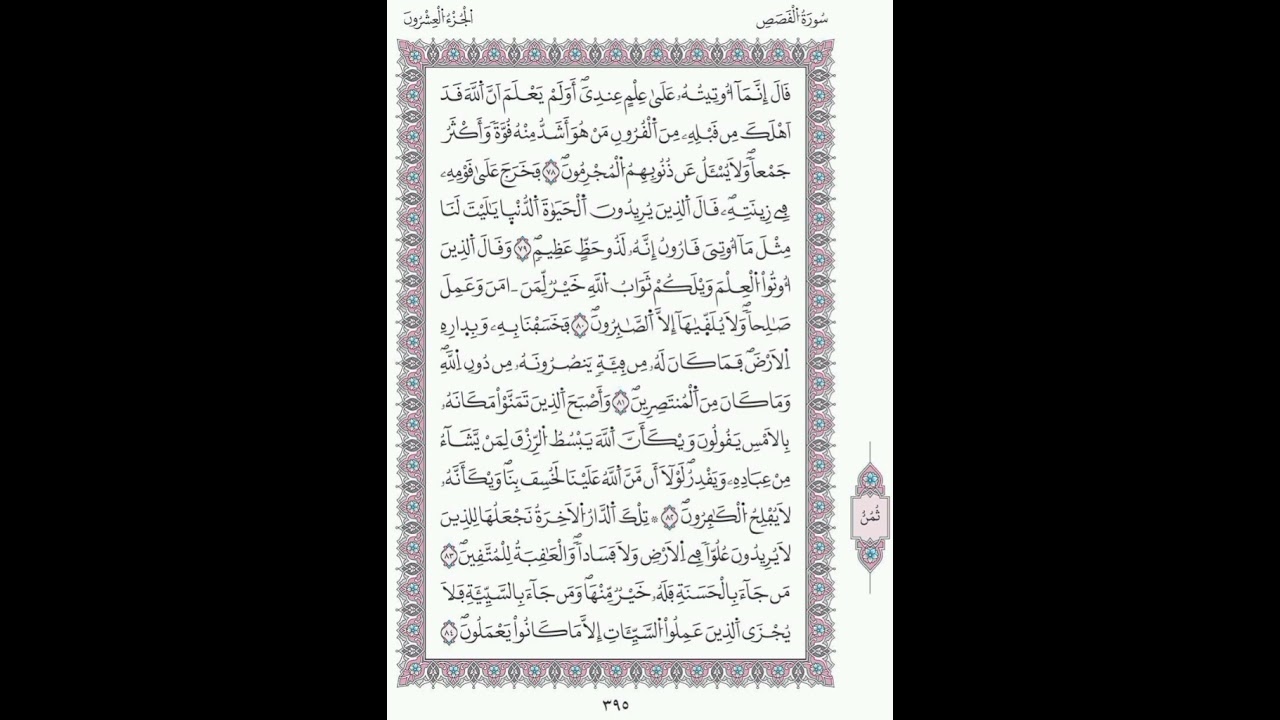 سُورَةُ الْقَصَصِ
الْجُزْءُ الْعِشْرُونَ
قَالَ إِنَّمَآ أُوتِيتُهُۥ عَلَىٰ عِلْمٍ عِندِيَۖ أَوَلَمْ يَعْلَمَ اَنَّ اَ۬للَّهَ قَدَ
اَهْلَكَ مِن قَبْلِهِۦ مِنَ اَ۬لْقُرُونِ مَنْ هُوَ أَشَدُّ مِنْهُ قُوَّةٗ وَأَكْثَرُ
جَمْعاٗۖ وَلَا يُسْـَٔلُ عَن ذُنُوبِهِمُ اُ۬لْمُجْرِمُونَۖ ٧٨ فَخَرَجَ عَلَىٰ قَوْمِهِۦ
فِے زِينَتِهِۦۖ قَالَ اَ۬لذِينَ يُرِيدُونَ اَ۬لْحَيَوٰةَ اَ۬لدُّنْي۪ا يَٰلَيْتَ لَنَا
مِثْلَ مَآ أُوتِيَ قَٰرُونُ إِنَّهُۥ لَذُو حَظٍّ عَظِيمٖۖ ٧٩ وَقَالَ اَ۬لذِينَ
أُوتُواْ اُ۬لْعِلْمَ وَيْلَكُمْ ثَوَابُ اُ۬للَّهِ خَيْرٞ لِّمَنَ ـ امَنَ وَعَمِلَ
صَٰلِحاٗۖ وَلَا يُلَقّ۪يٰهَآ إِلَّا اَ۬لصَّٰبِرُونَۖ ٨٠ فَخَسَفْنَا بِهِۦ وَبِد۪ارِهِ
اِ۬لَارْضَۖ فَمَا كَانَ لَهُۥ مِن فِئَةٖ يَنصُرُونَهُۥ مِن دُونِ اِ۬للَّهِۖ
وَمَا كَانَ مِنَ اَ۬لْمُنتَصِرِينَۖ ٨١ وَأَصْبَحَ اَ۬لذِينَ تَمَنَّوْاْ مَكَانَهُۥ
بِالَامْسِ يَقُولُونَ وَيْكَأَنَّ اَ۬للَّهَ يَبْسُطُ اُ۬لرِّزْقَ لِمَنْ يَّشَآءُ
مِنْ عِبَادِهِۦ وَيَقْدِرُۖ لَوْلَآ أَن مَّنَّ اَ۬للَّهُ عَلَيْنَا لَخُسِفَ بِنَاۖ وَيْكَأَنَّهُۥ
لَا يُفْلِحُ اُ۬لْكَٰفِرُونَۖ ٨٢ ۞ تِلْكَ اَ۬لدَّارُ اُ۬لَاخِرَةُ نَجْعَلُهَا لِلذِينَ
لَا يُرِيدُونَ عُلُوّاٗ فِے اِ۬لَارْضِ وَلَا فَسَاداٗۖ وَالْعَٰقِبَةُ لِلْمُتَّقِينَۖ ٨٣
مَن جَآءَ بِالْحَسَنَةِ فَلَهُۥ خَيْرٞ مِّنْهَاۖ وَمَن جَآءَ بِالسَّيِّئَةِ فَلَا
يُجْزَى اَ۬لذِينَ عَمِلُواْ اُ۬لسَّيِّـَٔاتِ إِلَّا مَا كَانُواْ يَعْمَلُونَۖ ٨٤
ثُمُنُ
٣٩٥